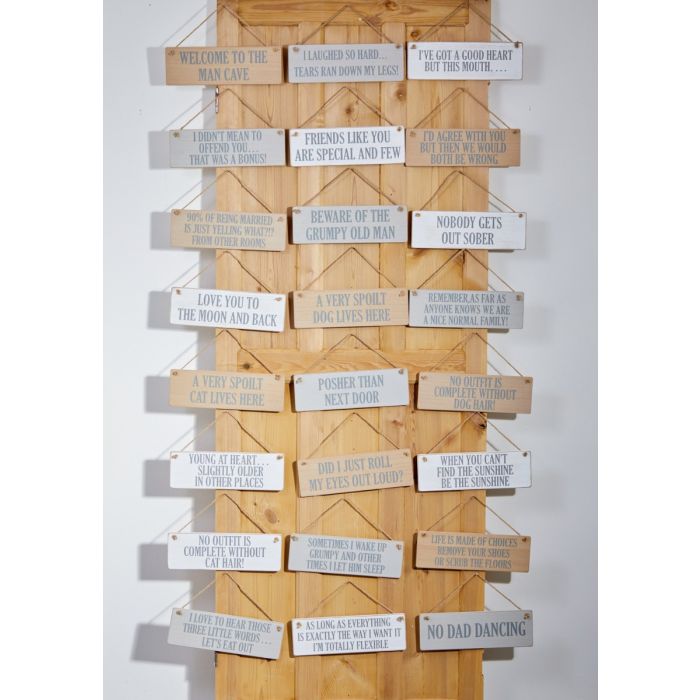 WELCOME TO THE
MAN CAVE
I LAUGHED SO HARD...
TEARS RAN DOWN MY LEGS!
I'VE GOT A GOOD HEART
BUT THIS MOUTH....
I DIDN'T MEAN TO
OFFEND YOU...
THAT WAS A BONUS!
FRIENDS LIKE YOU
ARE SPECIAL AND FEW
I'D AGREE WITH YOU
BUT THEN WE WOULD
BOTH BE WRONG
90% OF BEING MARRIED
IS JUST YELLING WHAT?!?
FROM OTHER ROOMS
BEWARE OF THE
GRUMPY OLD MAN
NOBODY GETS
OUT SOBER
LOVE YOU TO
THE MOON AND BACK
A VERY SPOILT
DOG LIVES HERE
REMEMBER,AS FAR AS
ANYONE KNOWS WE ARE
A NICE NORMAL FAMILY!
A VERY SPOILT
CAT LIVES HERE
POSHER THAN
NEXT DOOR
NO OUTFIT IS
COMPLETE WITHOUT
DOG HAIR!
YOUNG AT HEART...
SLIGHTLY OLDER
IN OTHER PLACES
DID I JUST ROLL
MY EYES OUT LOUD?
WHEN YOU CAN'T
FIND THE SUNSHINE
BE THE SUNSHINE
NO OUTFIT IS
COMPLETE WITHOUT
CAT HAIR!
SOMETIMES I WAKE UP
GRUMPY AND OTHER
TIMES I LET HIM SLEEP
LIFE IS MADE OF CHOICES
REMOVE YOUR SHOES
OR SCRUB THE FLOORS
I LOVE TO HEAR THOSE
THREE LITTLE WORDS...
LET'S EAT OUT
AS LONG AS EVERYTHING
IS EXACTLY THE WAY I WANT IT
I'M TOTALLY FLEXIBLE
NO DAD DANCING